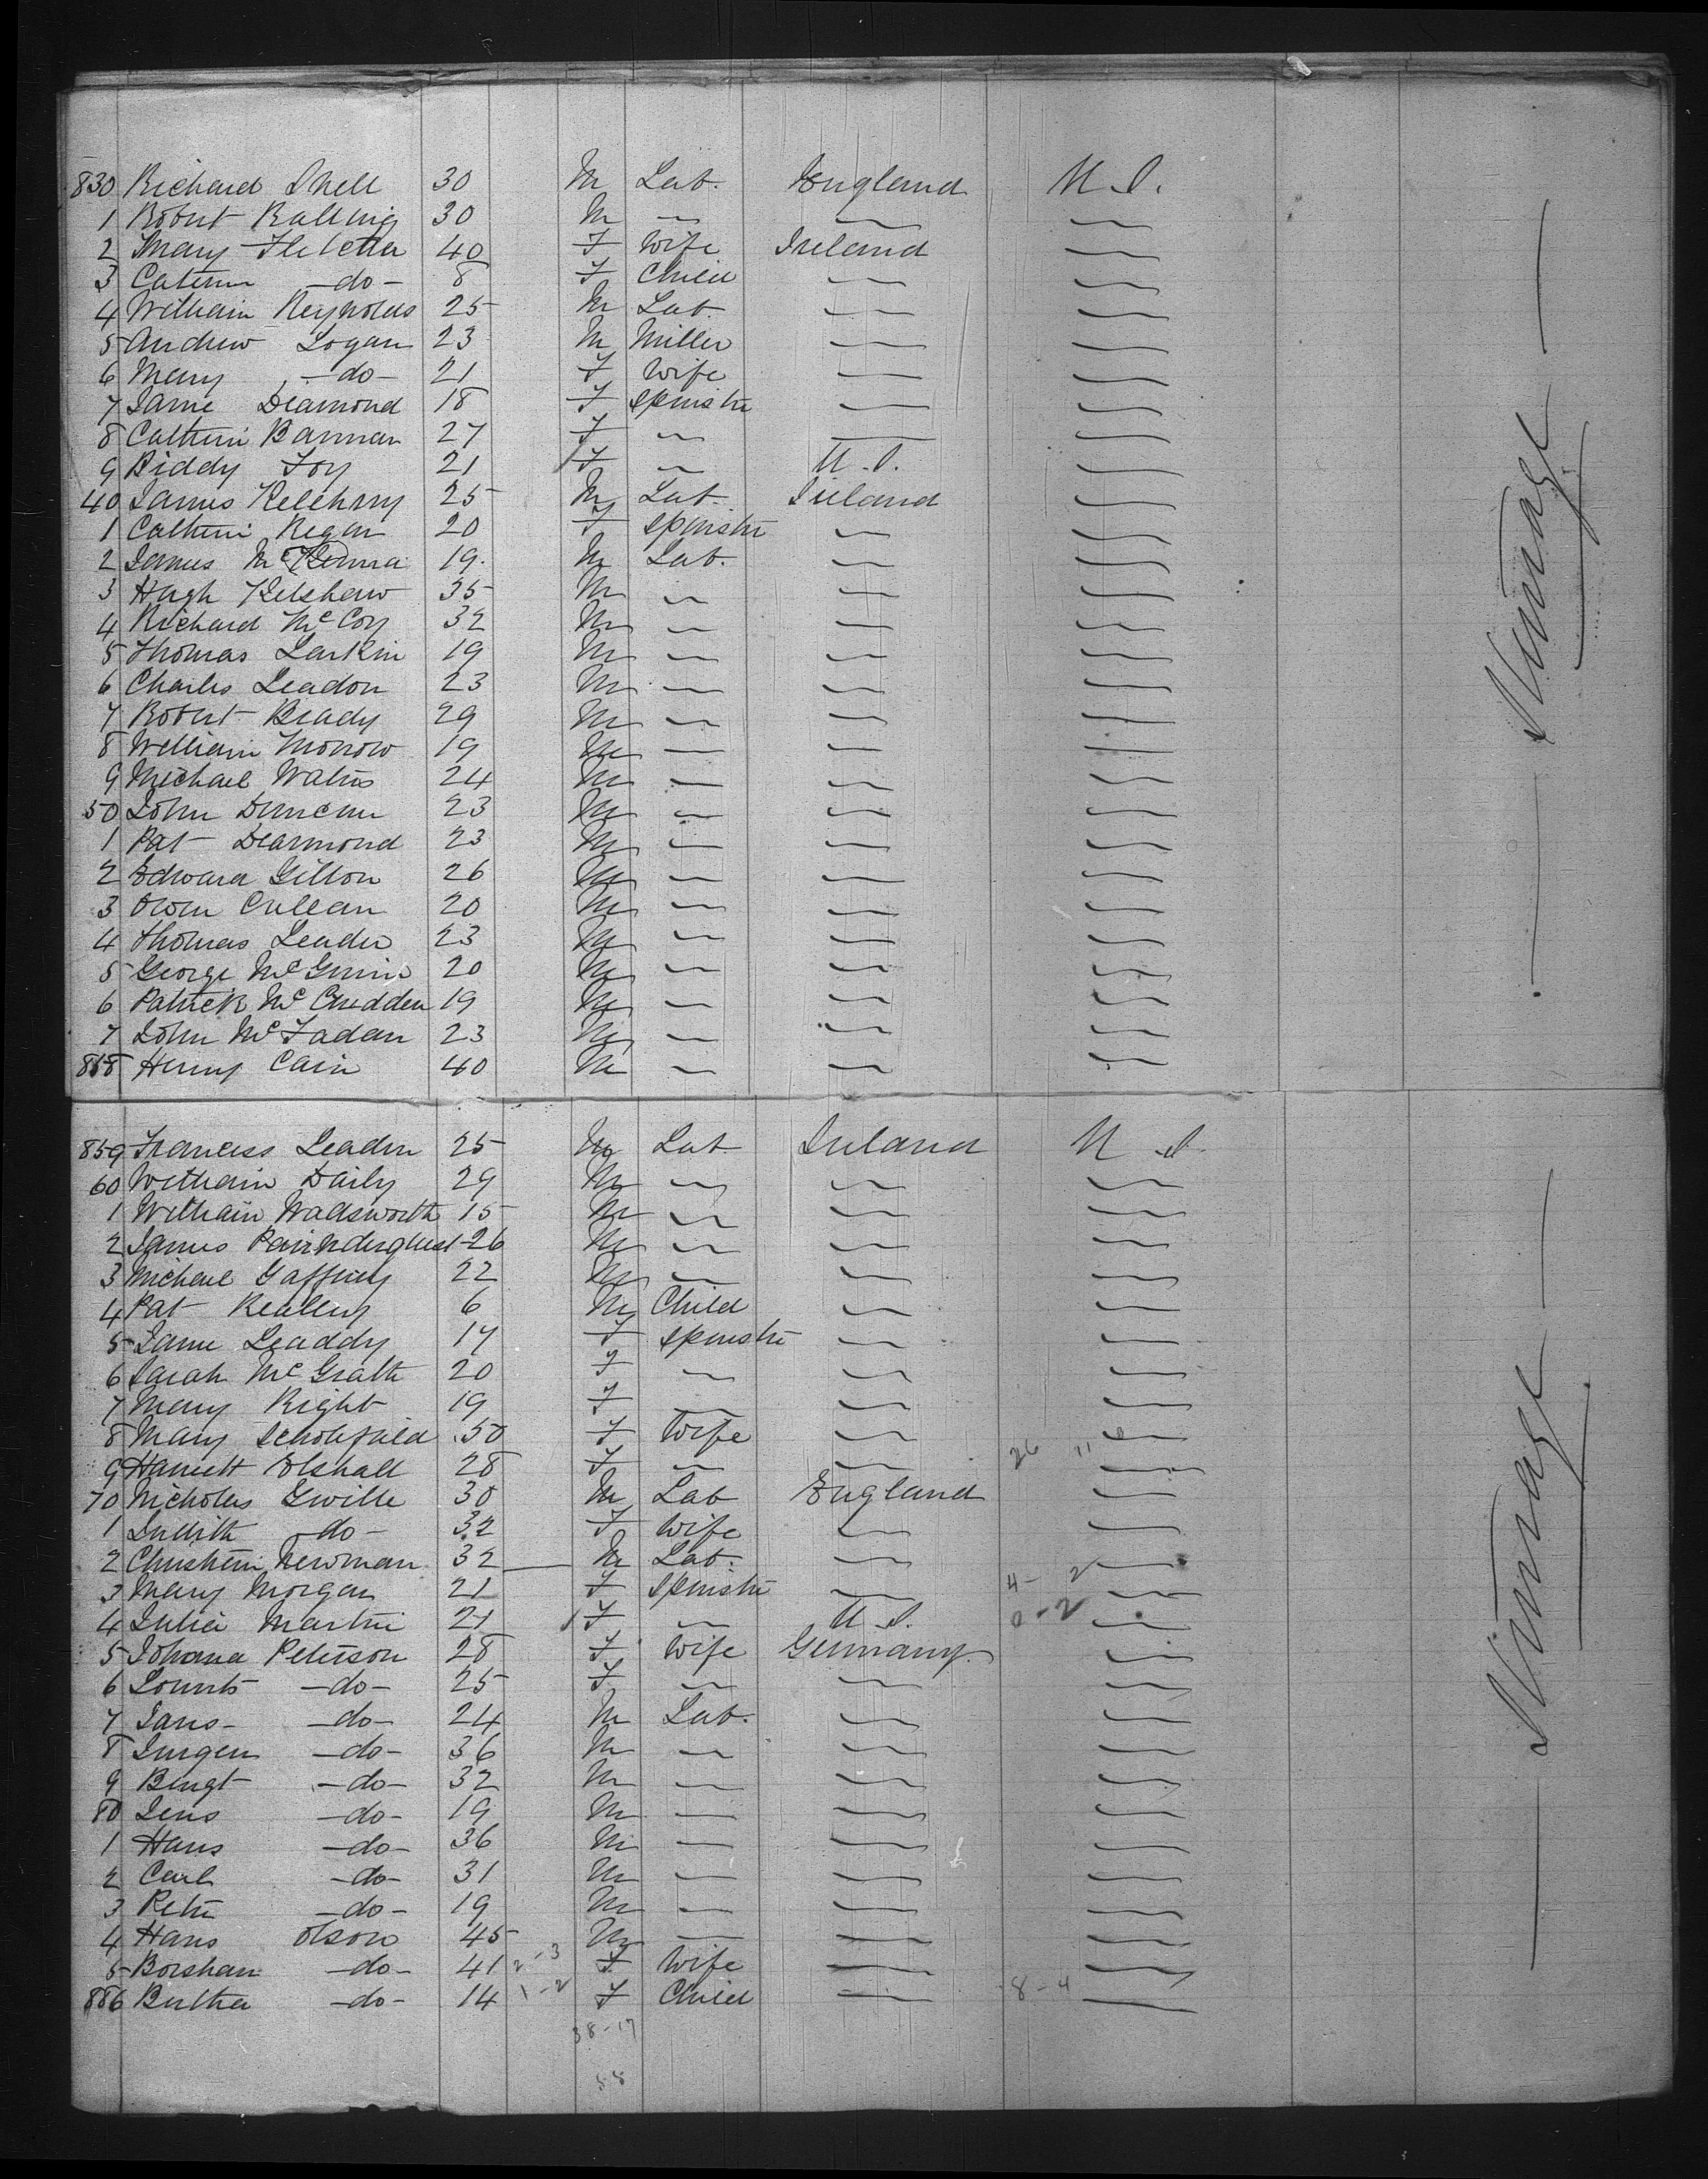 830 Richard Snell 30 M Lab. England U.S.
1 Robert Ralling 30 M
2 Mary Fletcher 40 F Wife Ireland
3 Cather -do- 8 F Child
4 William Reynolds 25 M Lab.
5 Andrew Logan 23 M Miller
6 Mary -do- 21 F Wife
7 Jane Diamond 18 F Spinster
8 Catheri Bannan 27 F
9 Biddy Foy 21 F U.S.
40 James 25 M Lab. Ireland
1 Catheri Regan 20 F Spinster
2 James McKenna 19 M Lab.
3 Hugh Kelshaw 35 M
4 Richard McCoy 32 M
5 Thomas Larkin 19 M
6 Charles Leadon 23 M
7 Robert Brady 29 M
8 William Morrow 19 M
9 Michael Waters 24 M
50 John Duncan 23 M
1 Pat Dearmond 23 M
2 Edward Gillon 26 M
3 Owen Cullean 20 M
4 Thomas Leader 23 M
5 George McGinnis 20 M
6 Patrick McCredden 19 M
7 John McFadan 23 M
858 Henry Cain 40 M
Steerage
859 Franciss Leaden 25 M Lab Ireland U.S.
60 William Daily 29 M
1 William Wadsworth 15 M
2 James 26 M
3 Michael Gaffney 22 M
4 Pat Realley 6 M Child
5 Jane Leaddy 17 F Spinster
6 Sarah McGrath 20 F
7 Mary Right 19 F
8 Mary Scholifield 50 F Wife
9 Harriett Elshall 28 F
70 Nicholas Gwille 30 M Lab England
1 Judith -do- 32 F Wife
2 Newman 32 M Lab.
3 Mary Morgan 21 F Spinster
4 Julia Martin 21 F U.S.
5 Johana Peterson 28 F Wife Germany
6 -do- 25 F
7 Jans -do- 24 M Lab.
8 Jurgen -do- 36 M
9 Bengt -do- 32 M
80 Jens -do- 19 M
1 Hans -do- 36 M
2 Carl -do- 31 M
3 Peter -do- 19 M
4 Hans Olson 45 M
5 Borshan -do- 41 F Wife
886 Bertha -do- 14 F Child 8-4
38-17
58
Steerage